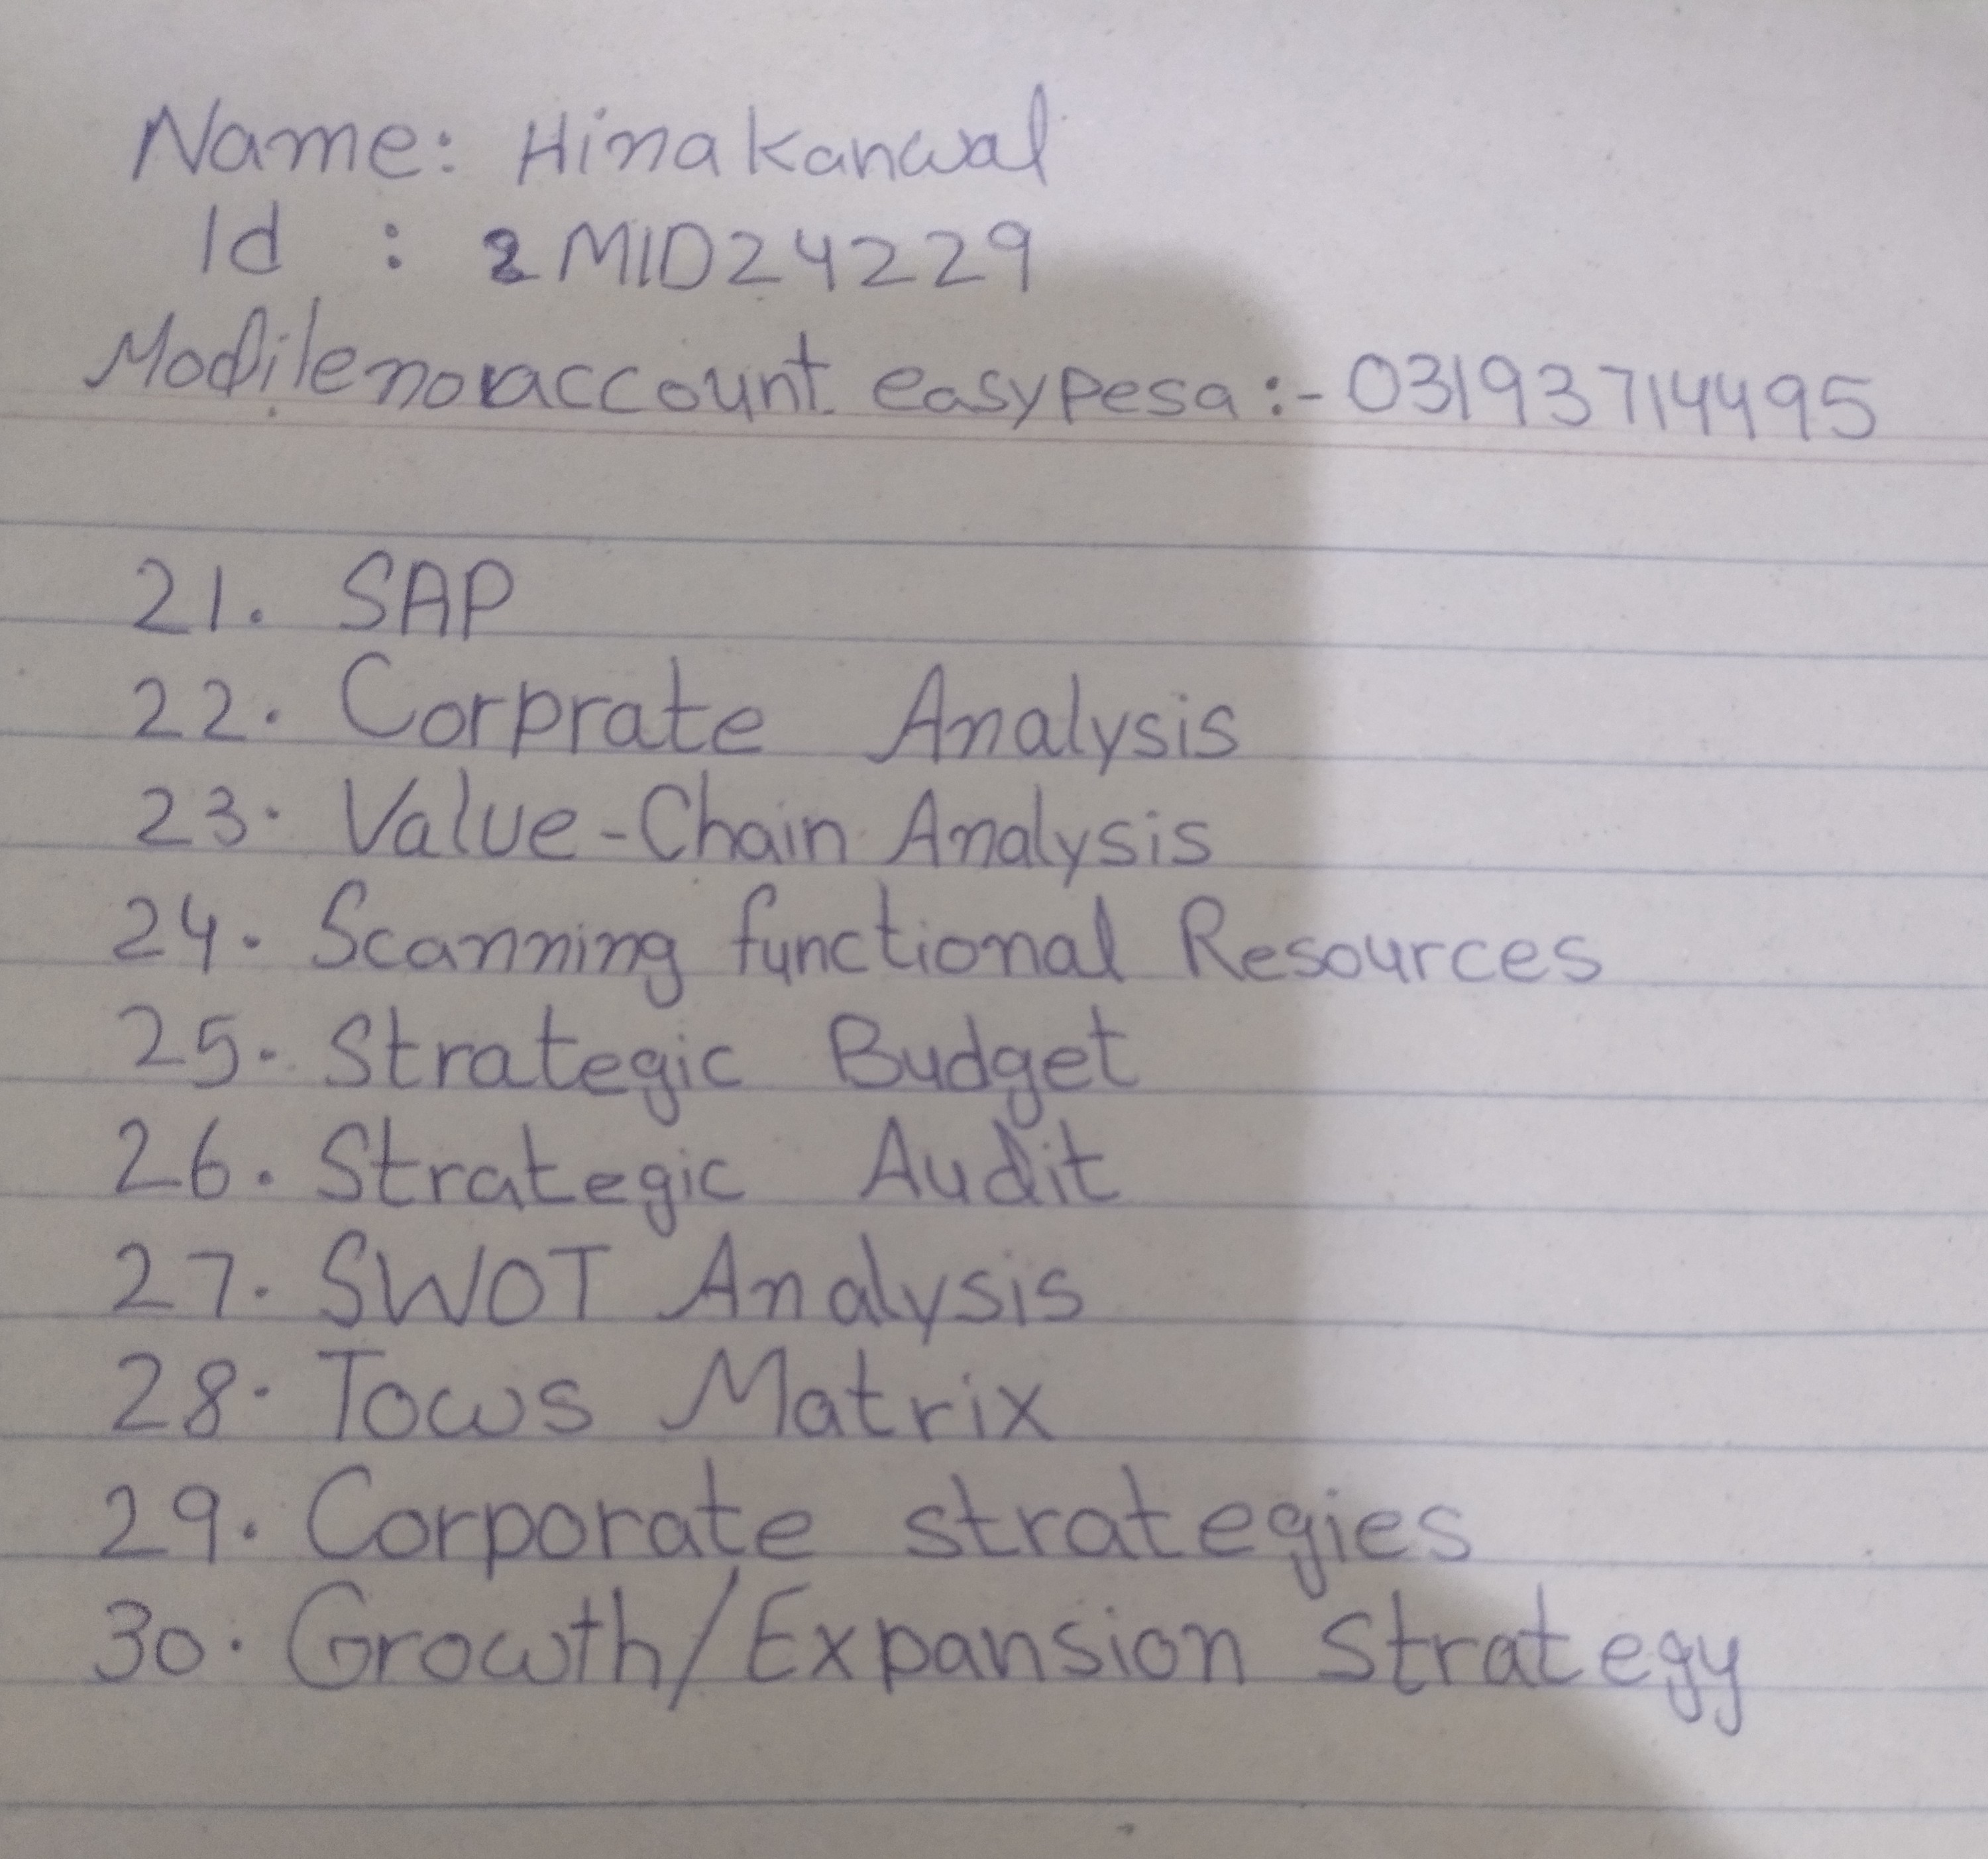 Name: Hina Kanwal
Id : 2MID24229
Mobile no account easypesa :- 03193714495
21. SAP
22. Corprate Analysis
23. Value-Chain Analysis
24. Scanning functional Resources
25. Strategic Budget
26. Strategic Audit
27. SWOT Analysis
28. Tows Matrix
29. Corporate strategies
30. Growth/Expansion strategy